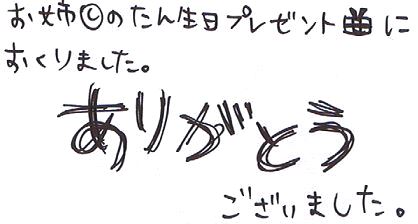 お姉Ⓒのたん生日プレゼント🎁に
おくりました。
ありがとう
ございました。